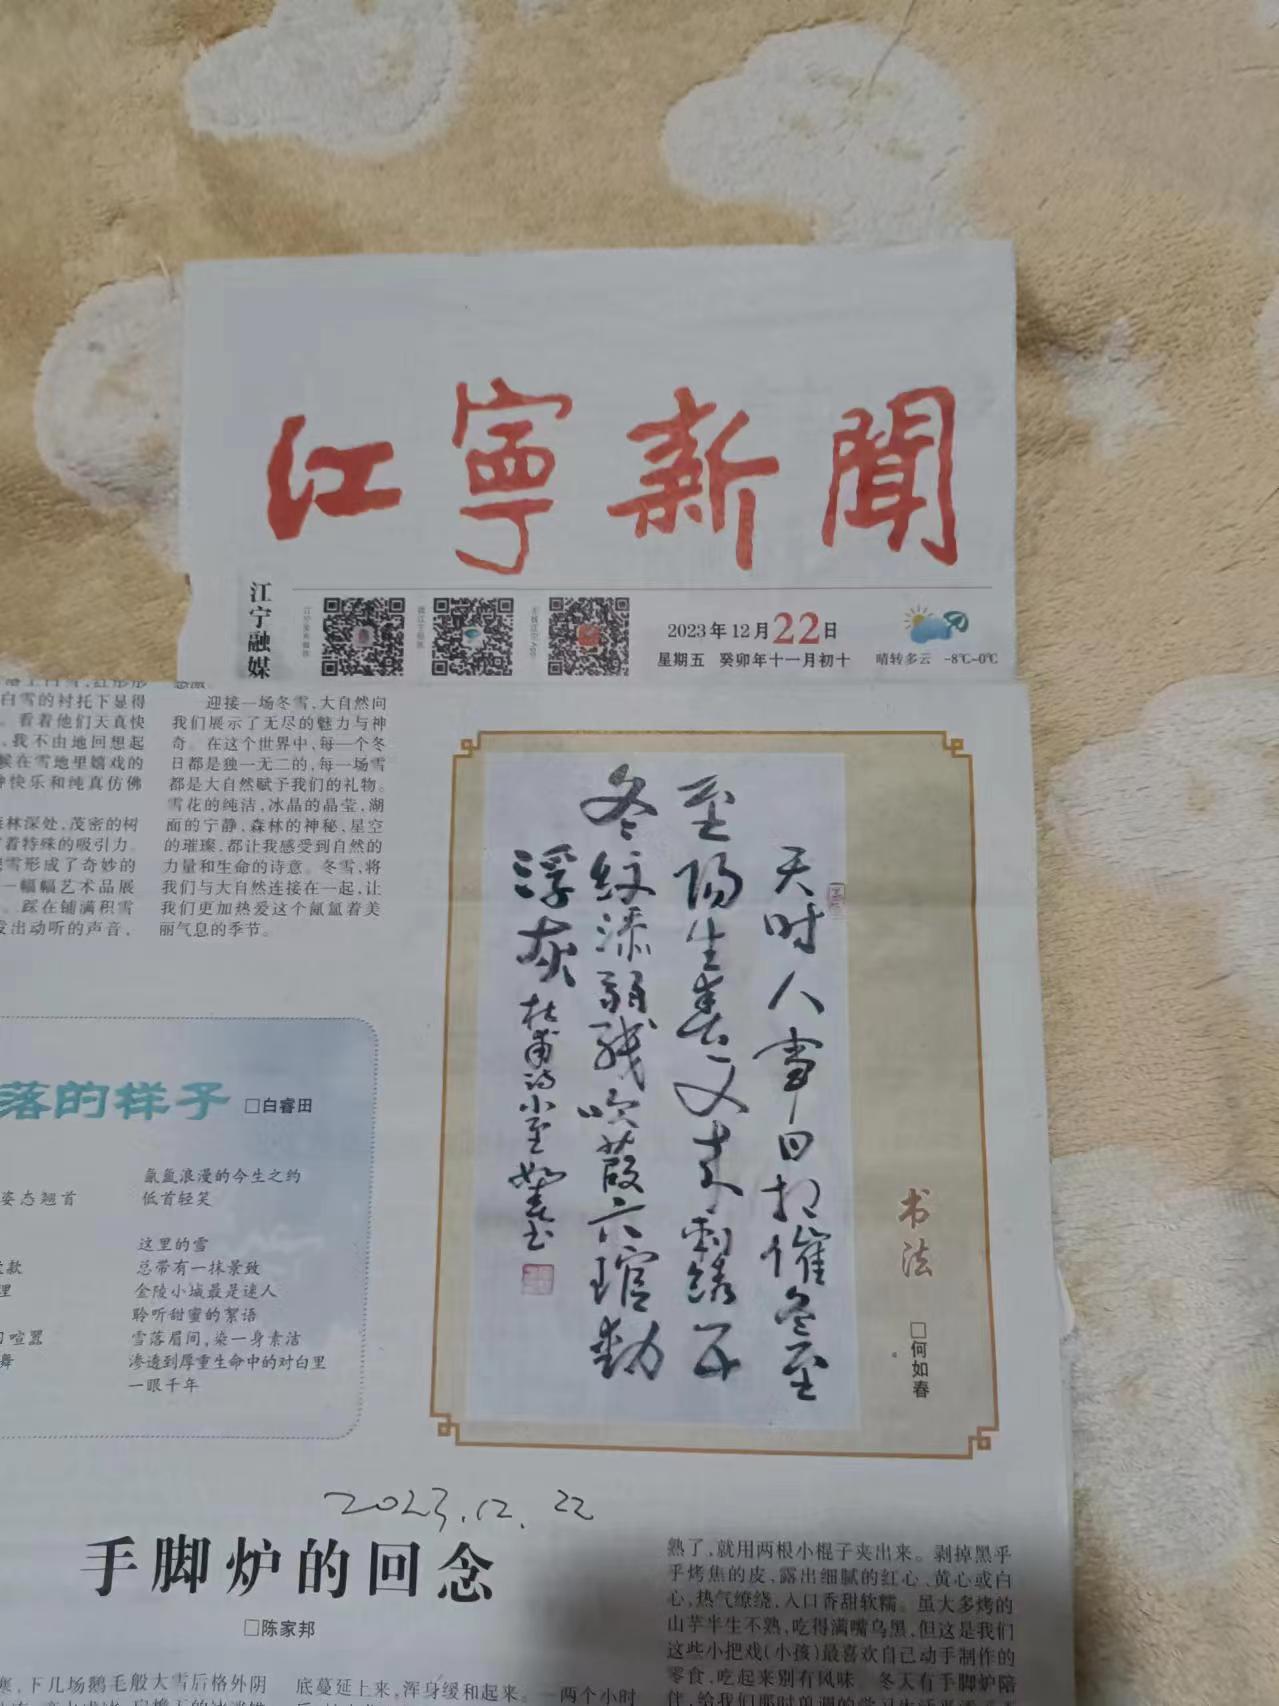 江寧新聞
江宁融媒
2023年12月22日
星期五 癸卯年十一月初十
晴转多云 -8℃~0℃
白雪的衬托下显得
。看着他们天真快
,我不由地回想起
候在雪地里嬉戏的
快乐和纯真仿佛
林深处,茂密的树
着特殊的吸引力。
雪形成了奇妙的
一幅幅艺术品展
。踩在铺满积雪
发出动听的声音,
迎接一场冬雪,大自然向
我们展示了无尽的魅力与神
奇。在这个世界中,每一个冬
日都是独一无二的,每一场雪
都是大自然赋予我们的礼物。
雪花的纯洁,冰晶的晶莹,湖
面的宁静,森林的神秘,星空
的璀璨,都让我感受到自然的
力量和生命的诗意。冬雪,将
我们与大自然连接在一起,让
我们更加热爱这个氤氲着美
丽气息的季节。
天时人事日相催冬至
至阳生春又来刺绣五
冬纹添弱线吹葭六琯动
浮灰
杜甫诗小至如春书
书法
□何如春
落的样子 □白睿田
姿态翘首
款
理
喧嚣
舞
氤氲浪漫的今生之约
低首轻笑
这里的雪
总带有一抹景致
金陵小城最是迷人
聆听甜蜜的絮语
雪落眉间,染一身素洁
渗透到厚重生命中的对白里
一眼千年
2023.12.22
手脚炉的回念
□陈家邦
寒,下几场鹅毛般大雪后格外阴
底蔓延上来,浑身缓和起来。一两个小时
熟了,就用两根小棍子夹出来。剥掉黑乎
乎烤焦的皮,露出细腻的红心、黄心或白
心,热气缭绕,入口香甜软糯。虽大多烤的
山芋半生不熟,吃得满嘴乌黑,但这是我们
这些小把戏(小孩)最喜欢自己动手制作的
零食,吃起来别有风味。冬天有手脚炉陪